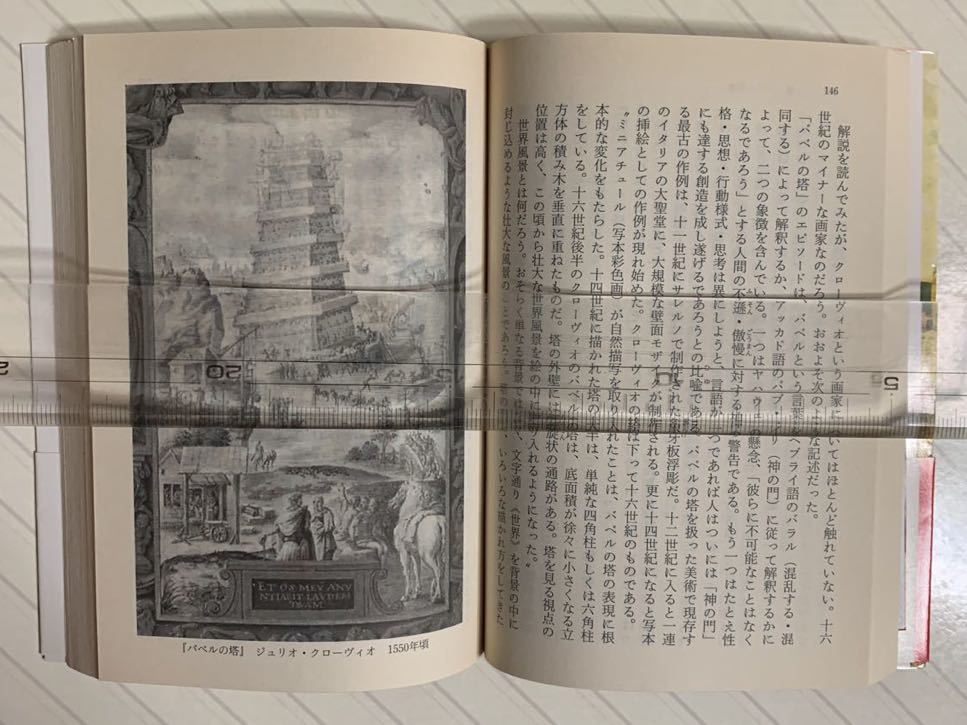 146
解説を読んでみたが、クローヴィオという画家についてはほとんど触れていない。十六
世紀のマイナーな画家なのだろう。おおよそ次のような記述だった。
「バベルの塔」のエピソードは、バベルという言葉をヘブライ語のバラル（混乱する・混
同する）によって解釈するか、アッカド語のバブ・イリ（神の門）に従って解釈するかに
よって、二つの象徴を含んでいる。一つはヤハウェの懸念、「彼らに不可能なことはなく
なるであろう」とする人間の不遜・傲慢に対する 警告である。もう一つはたとえ性
格・思想・行動様式・思考は異にしようと、言語が一つであれば人はついには「神の門」
にも達する創造を成し遂げるであろうとの比喩である。バベルの塔を扱った美術で現存す
る最古の作例は、十一世紀にサレルノで制作された象牙板浮彫だ。十二世紀に入ると一連
のイタリアの大聖堂に、大規模な壁面モザイクが制作される。更に十四世紀になると写本
の挿絵としての作例が現れ始めた。クローヴィオの塔は下って十六世紀のものである。
〝ミニアチュール（写本彩色画）が自然描写を取り入れたことは、バベルの塔の表現に根
本的な変化をもたらした。十四世紀に描かれた塔の大半は、単純な四角柱もしくは六角柱
をしている。十六世紀後半のクローヴィオのバベルの塔は、底面積が徐々に小さくなる立
方体の積み木を垂直に重ねたものだ。塔の外壁には螺旋状の通路がある。塔を見る視点の
位置は高く、この頃から壮大な世界風景を絵の中に取り入れるようになった。〟
世界風景とは何だろう。おそらく単なる背景ではなく、文字通り《世界》を背景の中に
封じ込めるような壮大な風景のことであろう。 いろいろな描かれ方をしてきた
ET OS MEV ANV
NTIABIT LAVDEM
TVAM
『バベルの塔』 ジュリオ・クローヴィオ 1550年頃
20
5